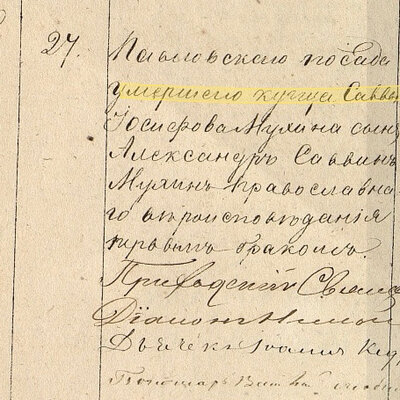 27.
Павловскаго посада
умершаго купца Саввы
Іосифова Мухина сынъ
Александръ Саввинъ
Мухинъ православна-
го вѣроисповѣданія
первымъ бракомъ.
Приходскій Свяще
Діаконъ
Дьячекъ Іоаннъ
Пономарь